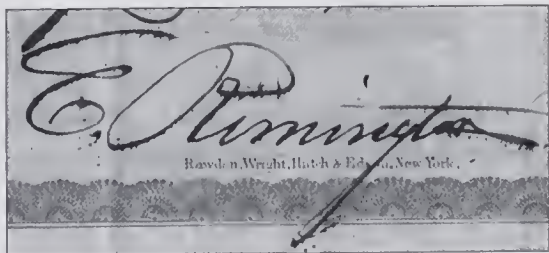 E Remington
Rawdon, Wright, Hatch & Edson, New York.